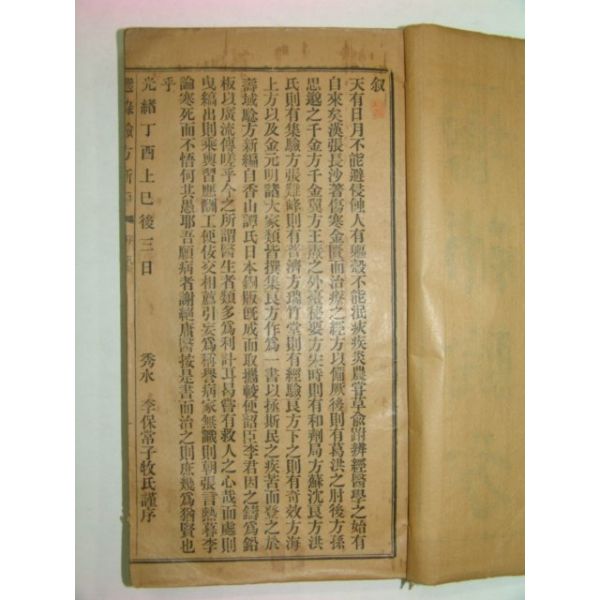 叙
天有日月不能避侵蝕人有軀殼不能泯疢疾炎農嘗草兪跗辨經醫學之始有
自來矣漢張長沙著傷寒金匱而治療之經方以備厥後則有葛洪之肘後方孫
思邈之千金方千金翼方王燾之外臺秘要方宋時則有和劑局方蘇沈良方洪
氏則有集驗方張雞峰則有普濟方瑞竹堂則有經驗良方下之則有奇效方海
上方以及金元明諸大家類皆撰集良方作為一書以拯斯民之疾苦而登之於
壽域驗方新編自香山譚氏日本銅版旣成而取攜較便詔臣李君因之鑄為鉛
板以廣流傳嗟乎今之所謂醫生者類多為利計耳曷嘗有救人之心哉而處則
曳縞出則乘輿習應酬工便佞交相薦引妄為稱譽病家無識則朝張言熱暮李
論寒死而不悟何其愚耶吾願病者謝絕庸醫按是書而治之則庶幾為猶賢也
乎
光緒丁酉上巳後三日
秀水 李保常子牧氏謹序
選錄驗方新編 序